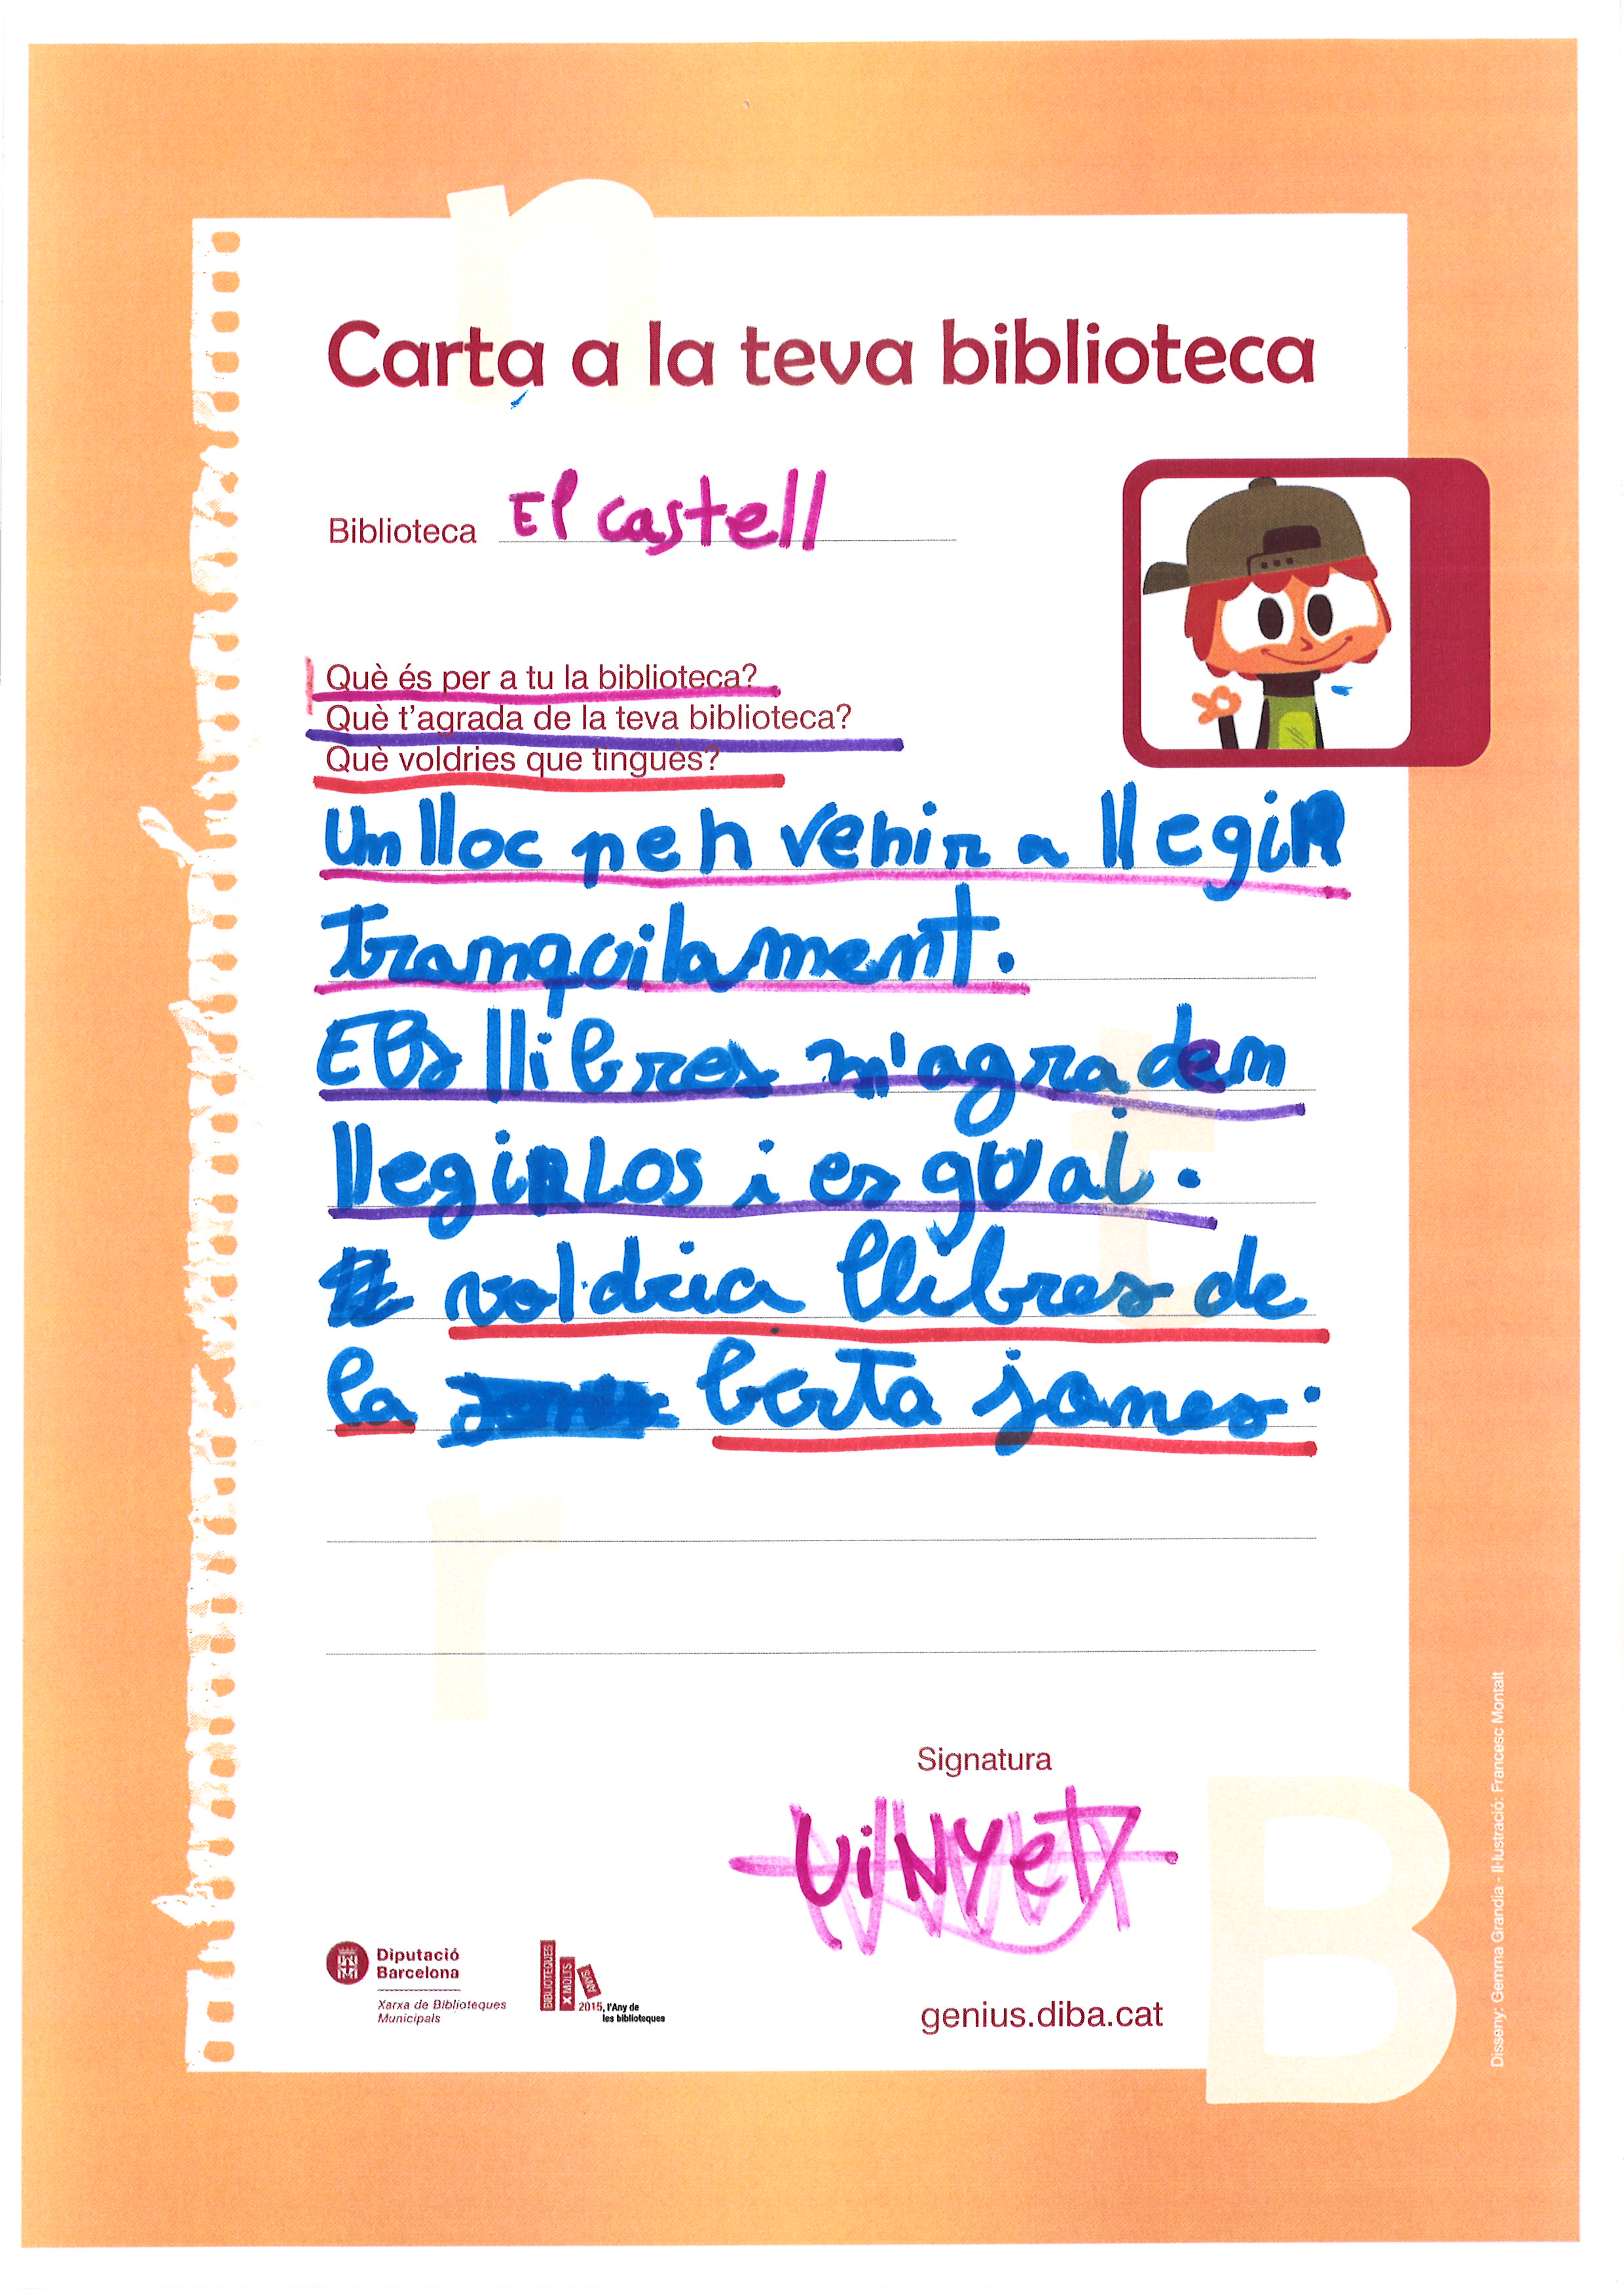 Carta a la teva biblioteca
Biblioteca El castell
Què és per a tu la biblioteca?
Què t'agrada de la teva biblioteca?
Què voldries que tingués?
Un lloc per venir a llegir
tranquilament.
Els llibres m'agraden
llegirlos i es gual.
voldria llibres de
la berta james.
Signatura
ViNyet
Diputació
Barcelona
Xarxa de Biblioteques
Municipals
BIBLIOTEQUES
X MOLTS
ANYS
2015, l'Any de
les biblioteques
genius.diba.cat
Disseny: Gemma Grandia - Il·lustració: Francesc Montalt
n
t
r
B